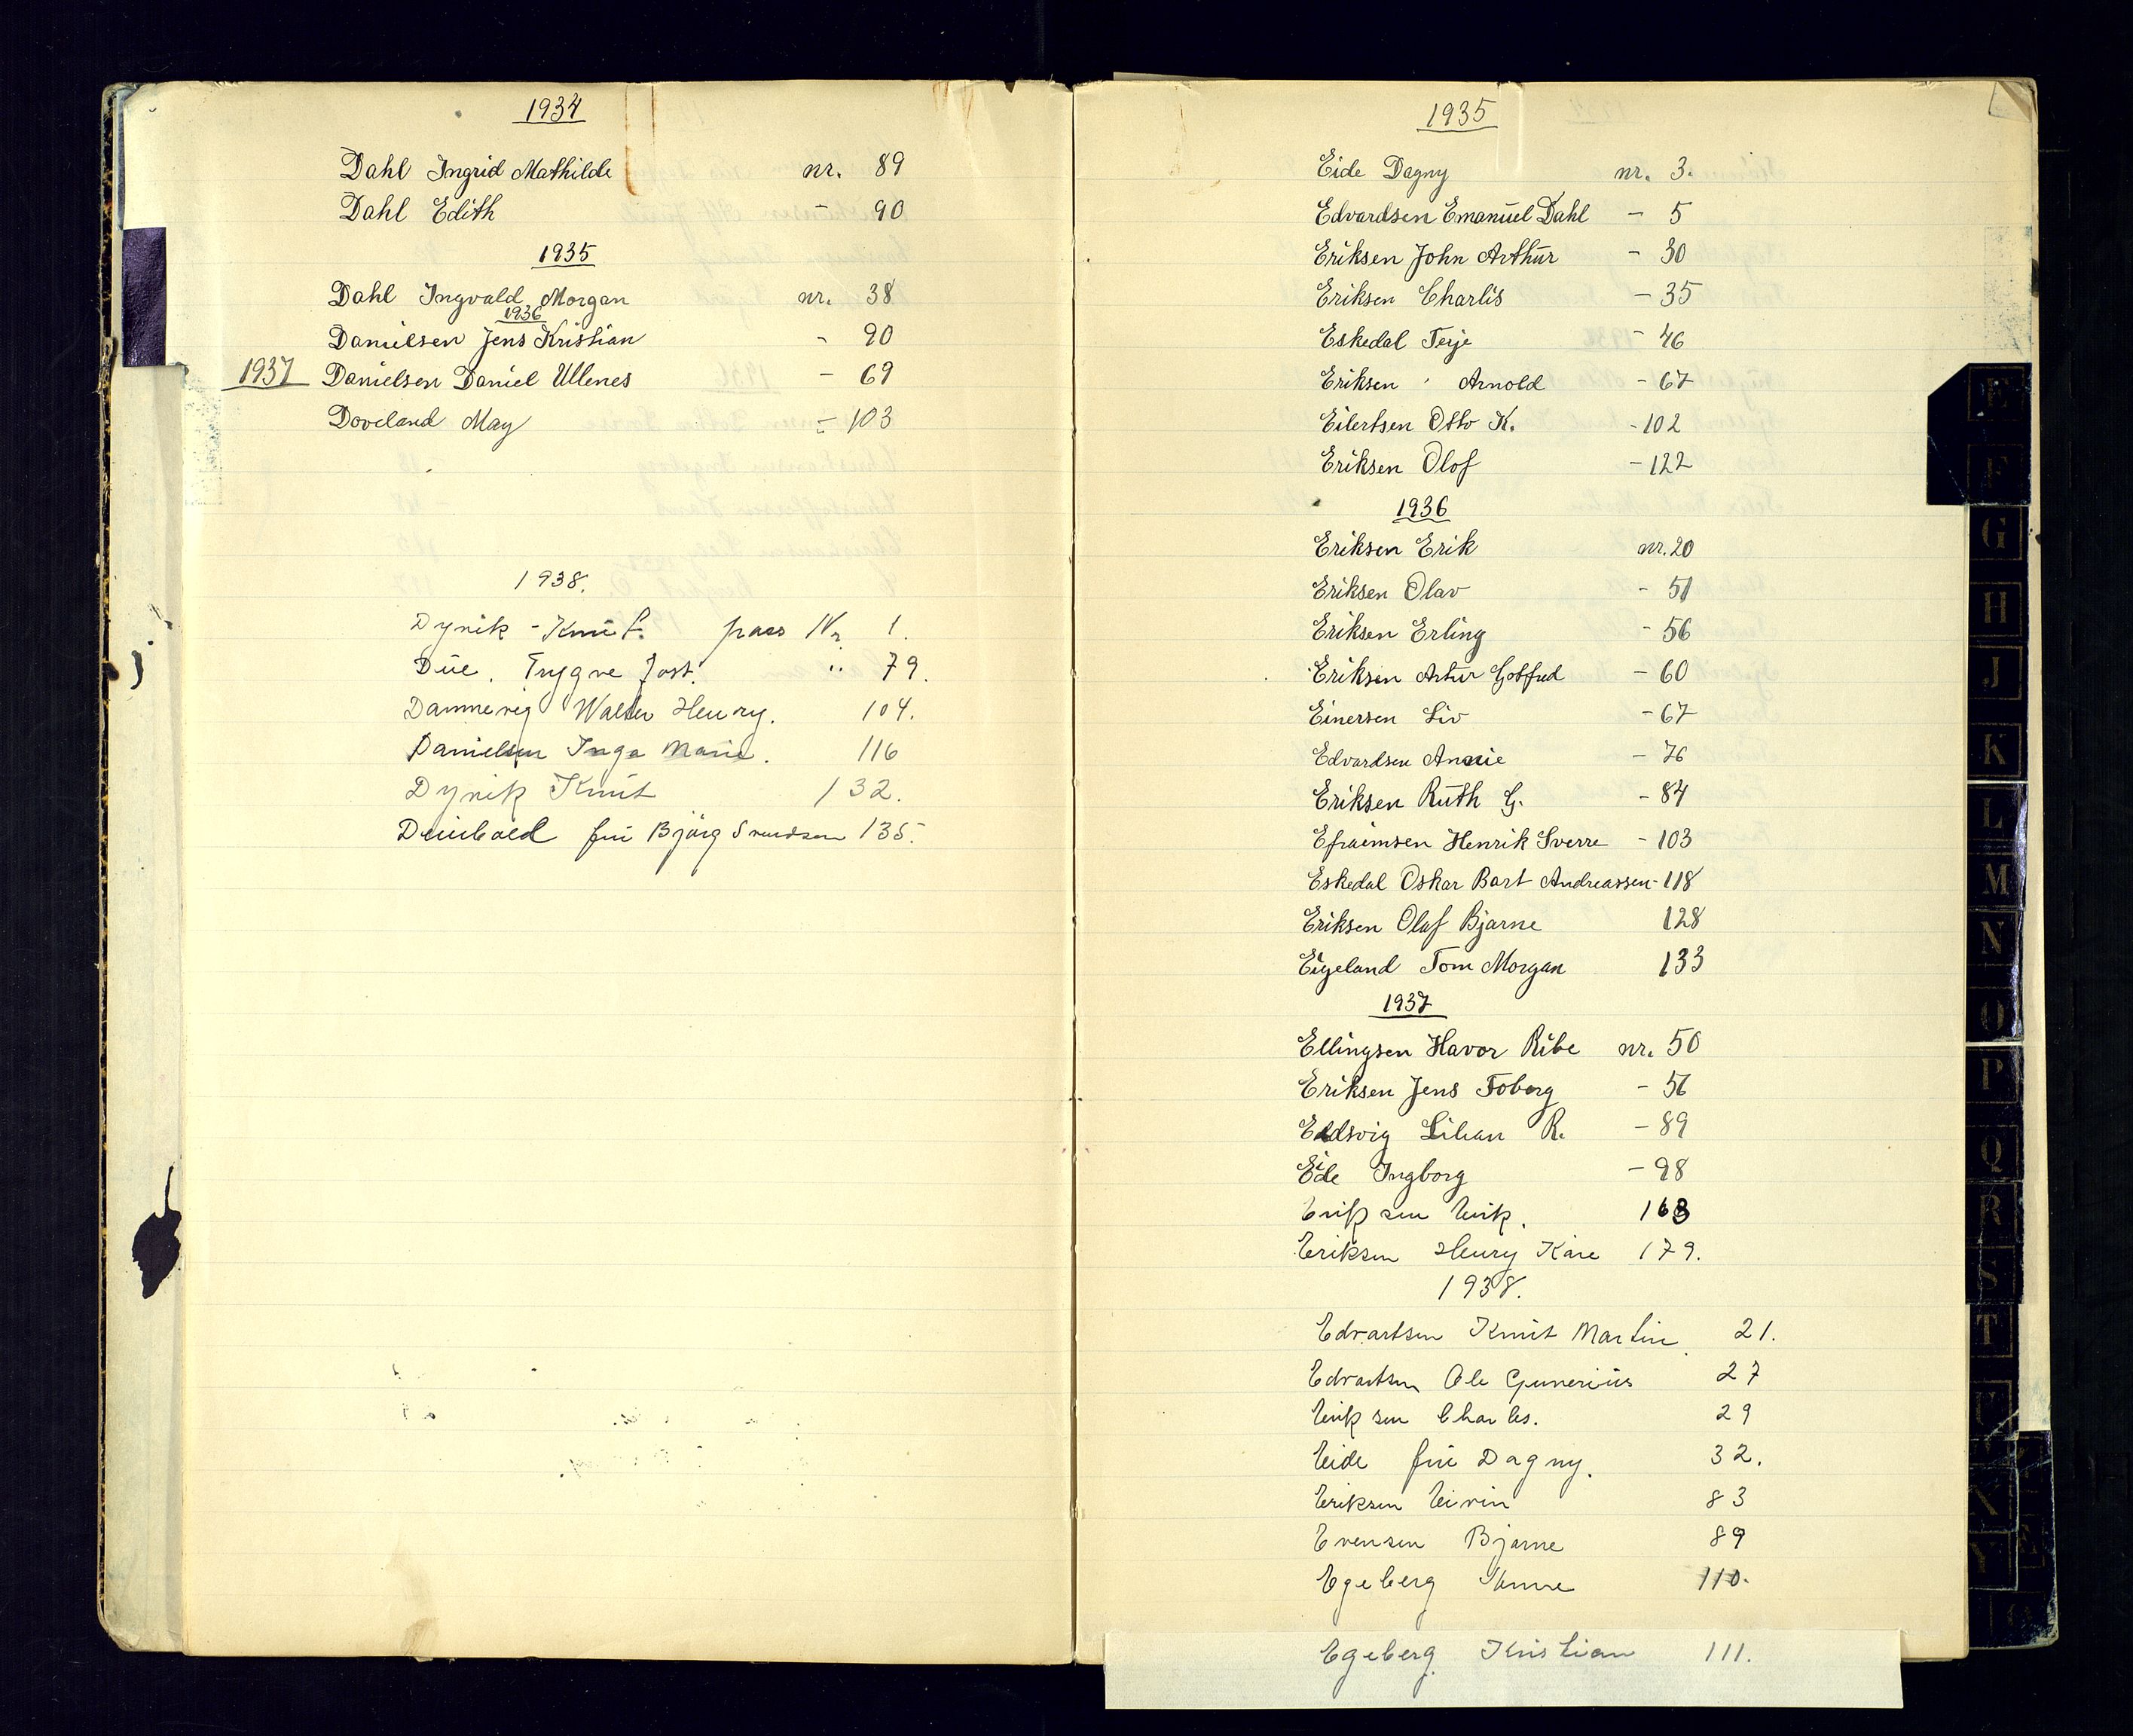 1934
Dahl Ingrid Mathilde nr. 89
Dahl Edith - 90
1935
Dahl Ingvald Morgan nr. 38
1936
Danielsen Jens Kristian - 90
1937 Danielsen Daniel Ullenes - 69
Doveland May - 103
1938.
Dyrik - Knut. pass Nr 1.
Due. Trygve Jost. " 79.
Dannevig Walter Henry. 104.
Danielsen Inga Marie. 116
Dyrik Knut 132.
fru Bjørg Svendsen 135.
1935
Eide Dagny nr. 3.
Edvardsen Emanuel Dahl - 5
Eriksen John Arthur - 30
Eriksen Charlis - 35
Eskedal Terje - 46
Eriksen Arnold - 67
Eilertsen Otto K. - 102
Eriksen Olof - 122
1936
Eriksen Erik nr. 20
Eriksen Olav - 51
Eriksen Erling - 56
Eriksen Artur Gotfred - 60
Einersen Liv - 67
Edvardsen Annie - 76
Eriksen Ruth G. - 84
Efraimsen Henrik Sverre - 103
Eskedal Oskar Bart Andreassen - 118
Eriksen Olaf Bjarne 128
Eigeland Tom Morgan 133
1937
Ellingsen Havor Ribe nr. 50
Eriksen Jens Foberg - 56
Eldsvig Lilian R. - 89
Eide Ingborg - 98
Eriksen Eirik. 163
Eriksen Henry Kåre 179.
1938.
Edvartsen Knut Martin. 21.
Edvartsen Ole Gunerius 27
Eriksen Charles. 29
Eide fru Dagny. 32.
Eriksen Eivin 83
Evensen Bjarne 89
Egeberg Anne 110.
Egeberg Kristian 111.
E
F
G
H
J
K
L
M
N
O
P
Q
R
S
T